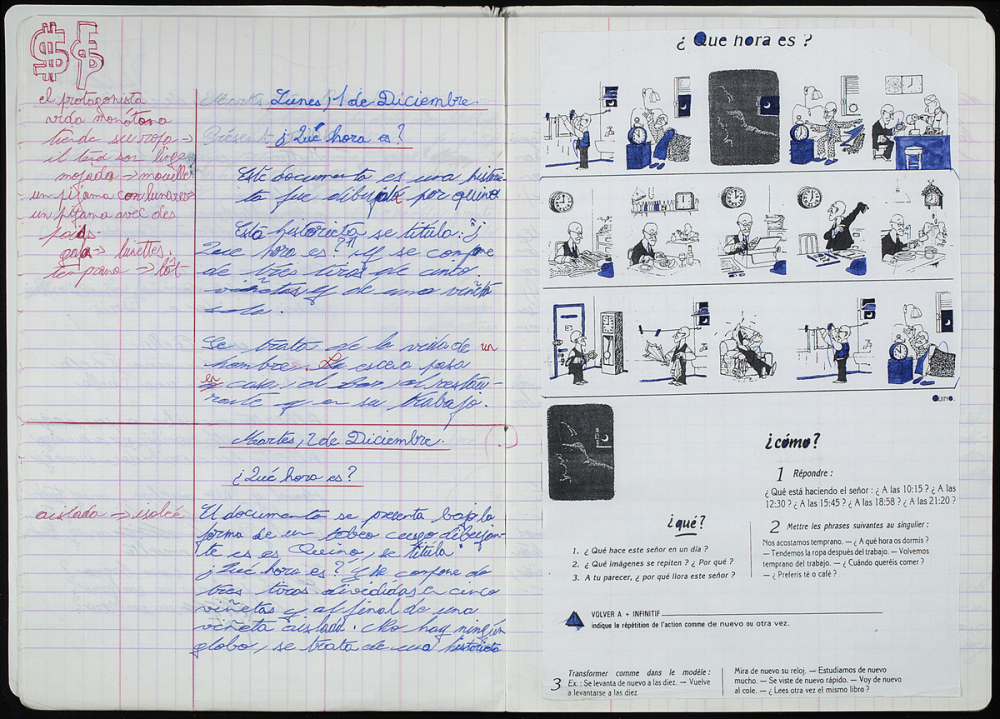 el protagonista
vida monótona
tiende su ropa →
il tend son linge
mojado → mouillé
un pijama con lunares
un pijama avec des
pois.
gafas → lunettes.
temprano → tôt
Lunes, 1 de Diciembre.
¿Qué hora es?
Este documento es una histori-
ta fue dibujada por quino
Esta historieta se titula: "¿
Que hora es?" y se compone
de tres tiras de cinco
viñetas y de una viñeta
sola.
Se trata de la vida de un
hombre. La escena pasa
en casa, el bar, el restau-
rante y en su trabajo.
Martes, 2 de Diciembre.
¿Qué hora es?
aislada → isolée
El documento se presenta bajo la
forma de un tebeo cuyo dibujan-
te es es Quino, se titula
¿Qué hora es? y se compone de
tres tiras divididas en cinco
viñetas y al final de una
viñeta aislada. No hay ningún
globo, se trata de una historieta
¿ Que hora es ?
QUINO.
¿cómo?
1 Répondre :
¿ Qué está haciendo el señor : ¿ A las 10:15 ? ¿ A las
12:30 ? ¿ A las 15:45 ? ¿ A las 18:58 ? ¿ A las 21:20 ?
¿qué?
1. ¿ Qué hace este señor en un día ?
2. ¿ Qué imágenes se repiten ? ¿ Por qué ?
3. A tu parecer, ¿ por qué llora este señor ?
2 Mettre les phrases suivantes au singulier :
Nos acostamos temprano. — ¿ A qué hora os dormís ?
— Tendemos la ropa después del trabajo. — Volvemos
temprano del trabajo. — ¿ Cuándo queréis comer ?
— ¿ Preferís té o café ?
VOLVER A + INFINITIF
indique la répétition de l'action comme de nuevo ou otra vez.
3 Transformer comme dans le modèle :
Ex. : Se levanta de nuevo a las diez. → Vuelve
a levantarse a las diez
Mira de nuevo su reloj. — Estudiamos de nuevo
mucho. — Se viste de nuevo rápido. — Voy de nuevo
al cole. — ¿ Lees otra vez el mismo libro ?